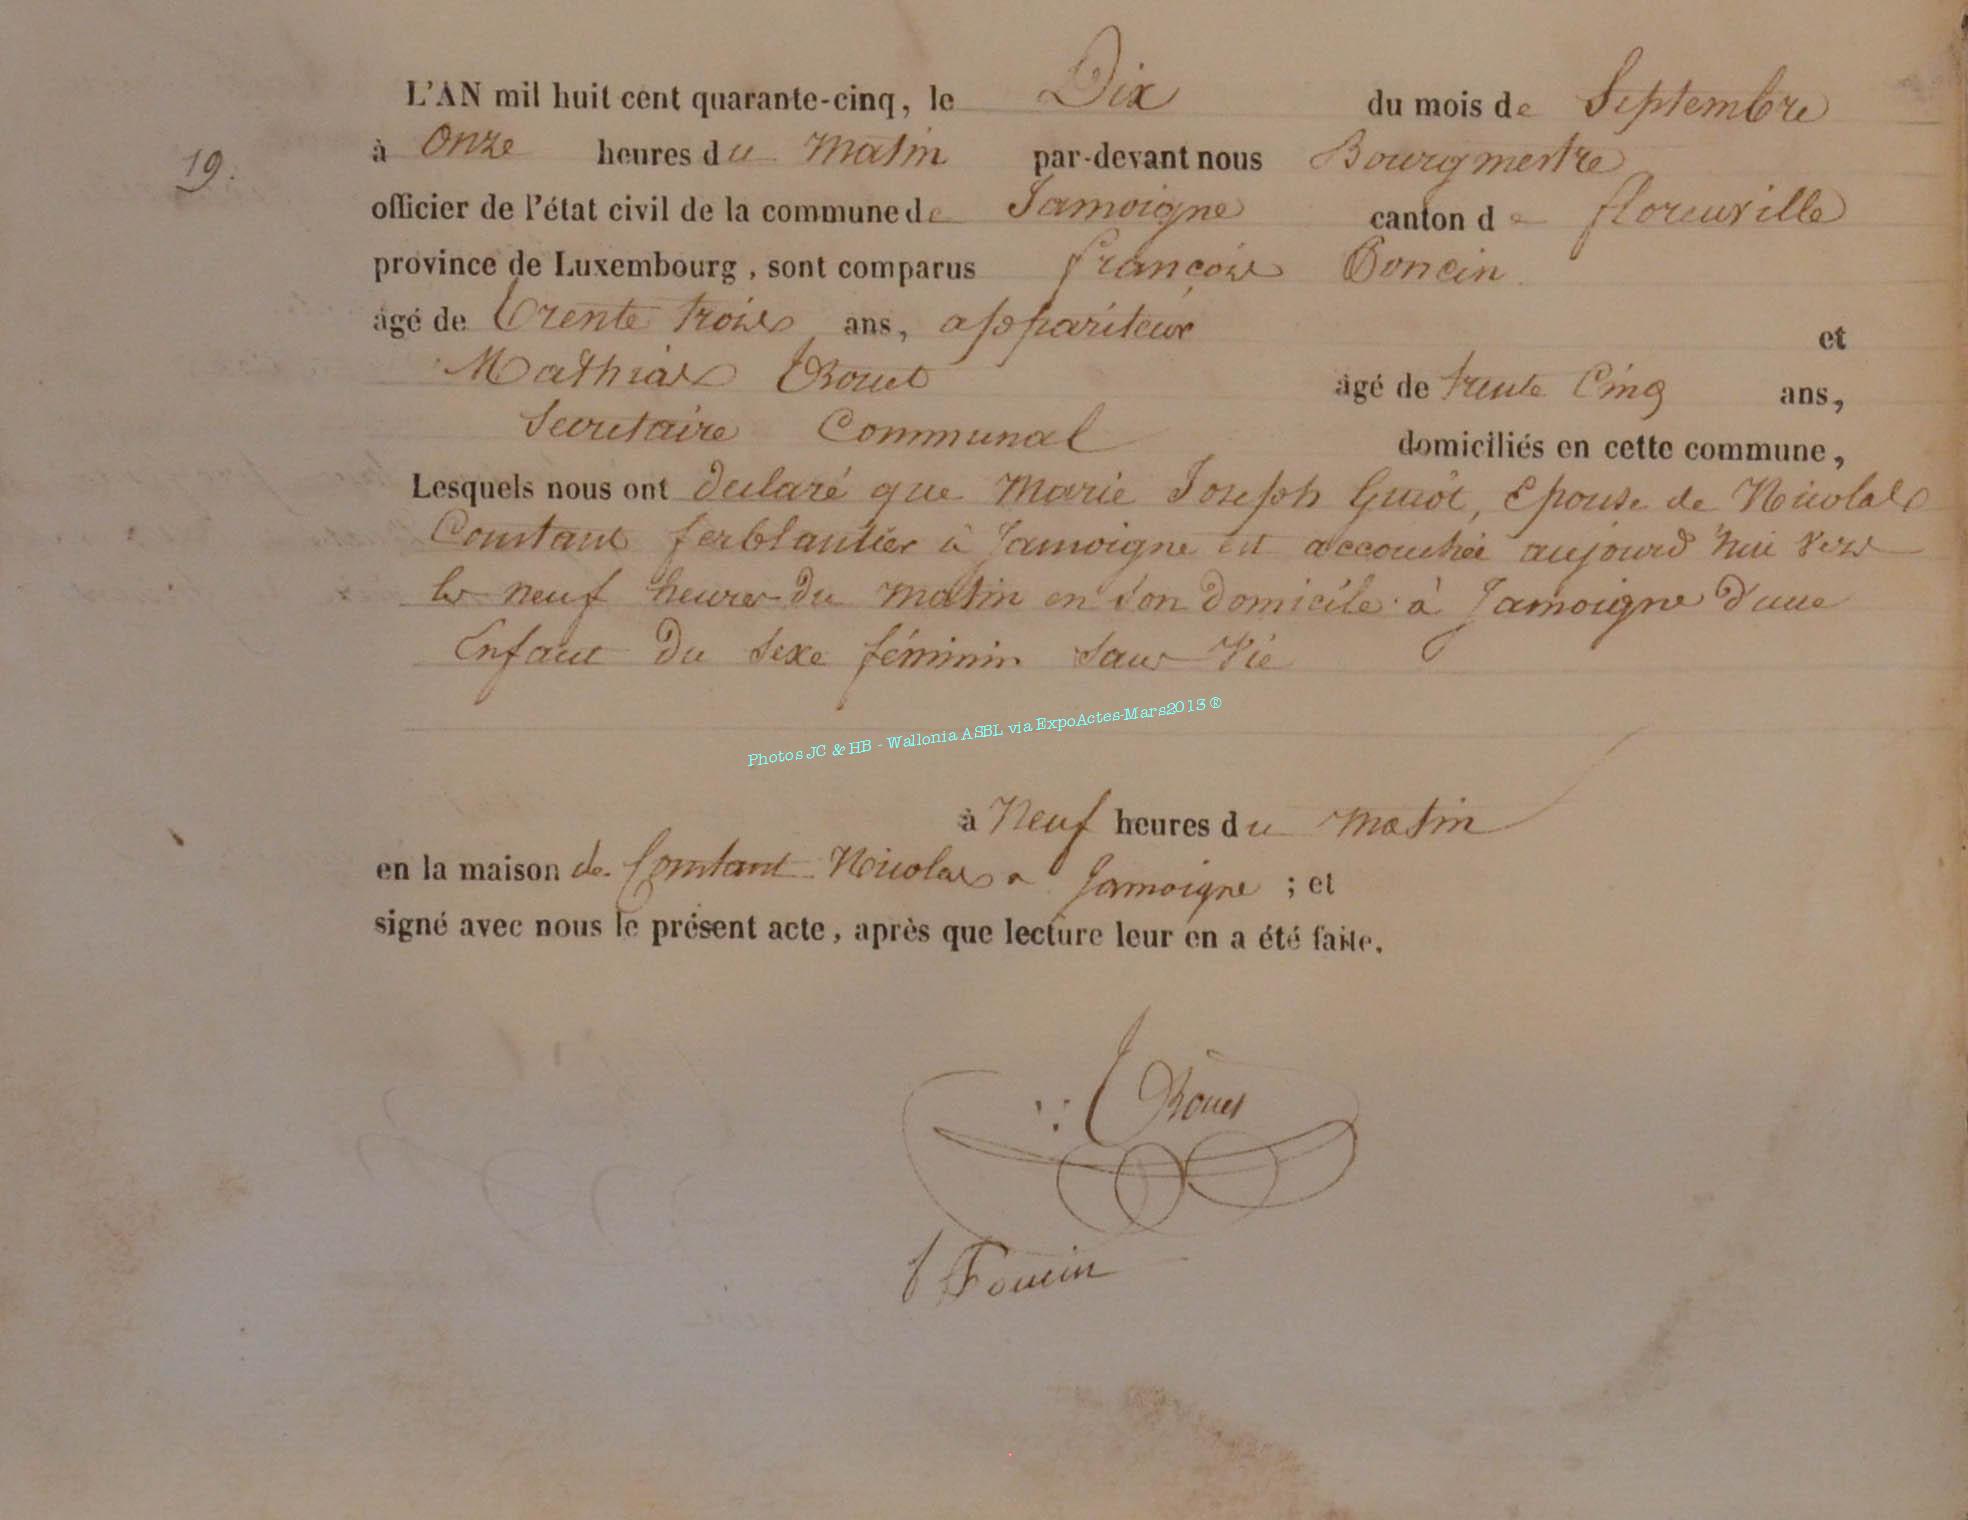 L'AN mil huit cent quarante-cinq, le Dix du mois de Septembre
19. à onze heures du matin par-devant nous Bourgmestre
officier de l'état civil de la commune de Jamoigne canton de florenville
province de Luxembourg, sont comparus françois
âgé de trente trois ans, appariteur et
Mathias âgé de trente Cinq ans,
Secretaire Communal domiciliés en cette commune,
Lesquels nous ont declaré que Marie Joseph Guiot, Epouse de Nicolas
Constant ferblantier à Jamoigne est accouchée aujourd'hui vers
les neuf heures du matin en son Domicile à Jamoigne d'une
Enfant du sexe féminin sans Vie
Photos JC & HB - Wallonia ASBL via ExpoActes-Mars2013 ®
à Neuf heures du matin
en la maison de Constant Nicolas a Jamoigne ; et
signé avec nous le présent acte, après que lecture leur en a été faite.